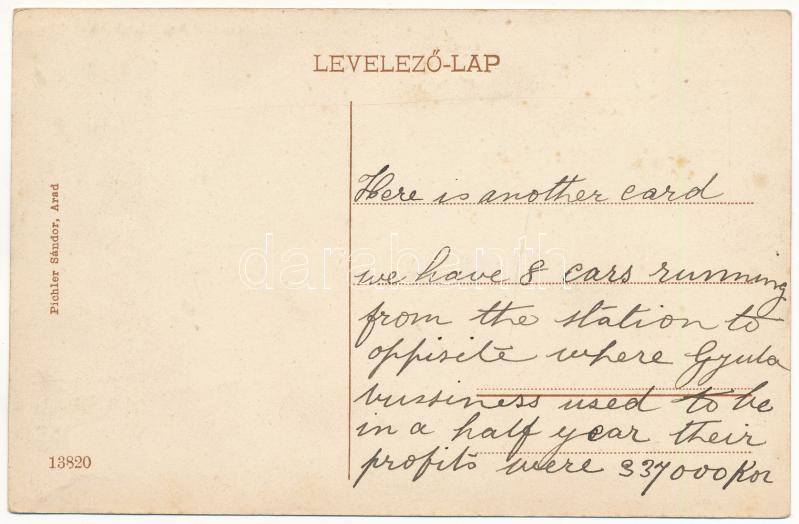 LEVELEZŐ-LAP
Pichler Sándor, Arad
13820
Here is another card
we have 8 cars running
from the station to
oppisite where Gyula
bussiness used to be
in a half year their
profits were 337000 Kor
darabanth